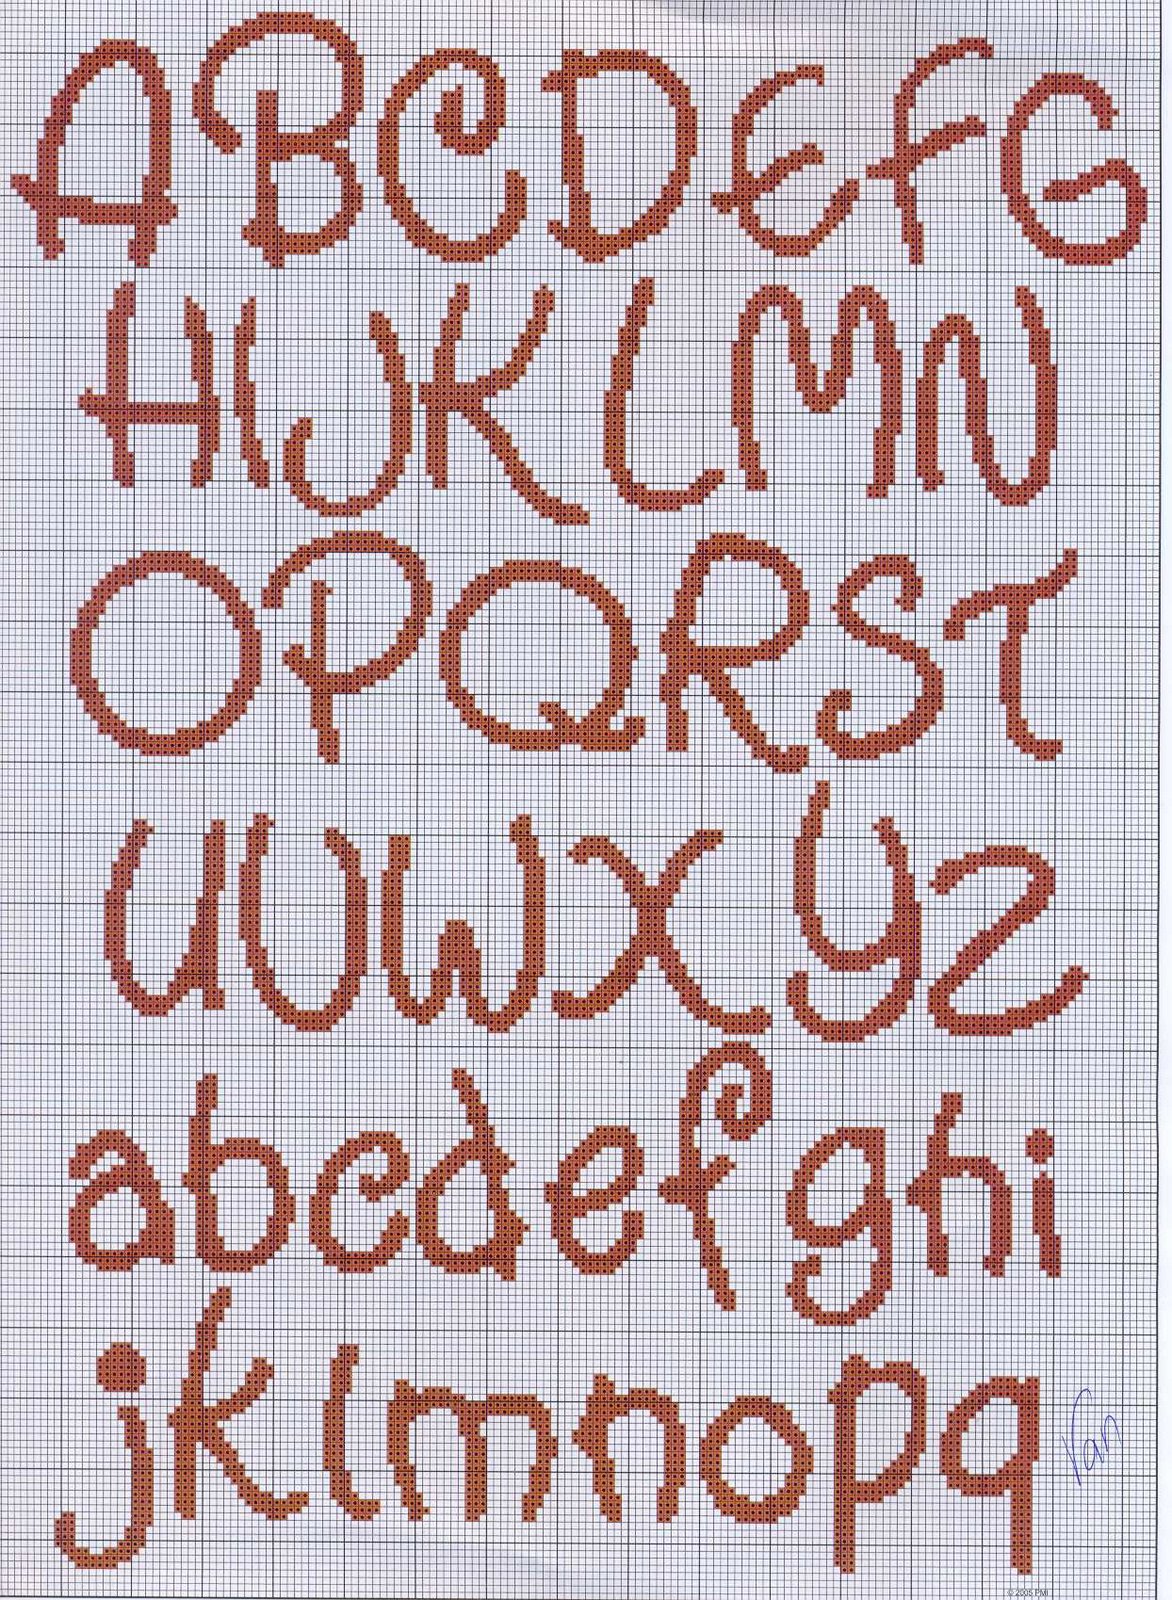 ABCDEFG
HIJKLMN
OPQRST
UVWXYZ
abcdefghi
jklmnopq
Van
© 2005 PMI